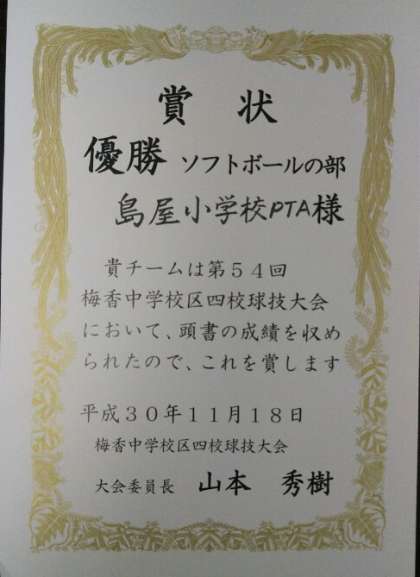 賞状
優勝 ソフトボールの部
島屋小学校PTA様
貴チームは第５４回
梅香中学校区四校球技大会
において、頭書の成績を収め
られたので、これを賞します
平成３０年１１月１８日
梅香中学校区四校球技大会
大会委員長 山本 秀樹